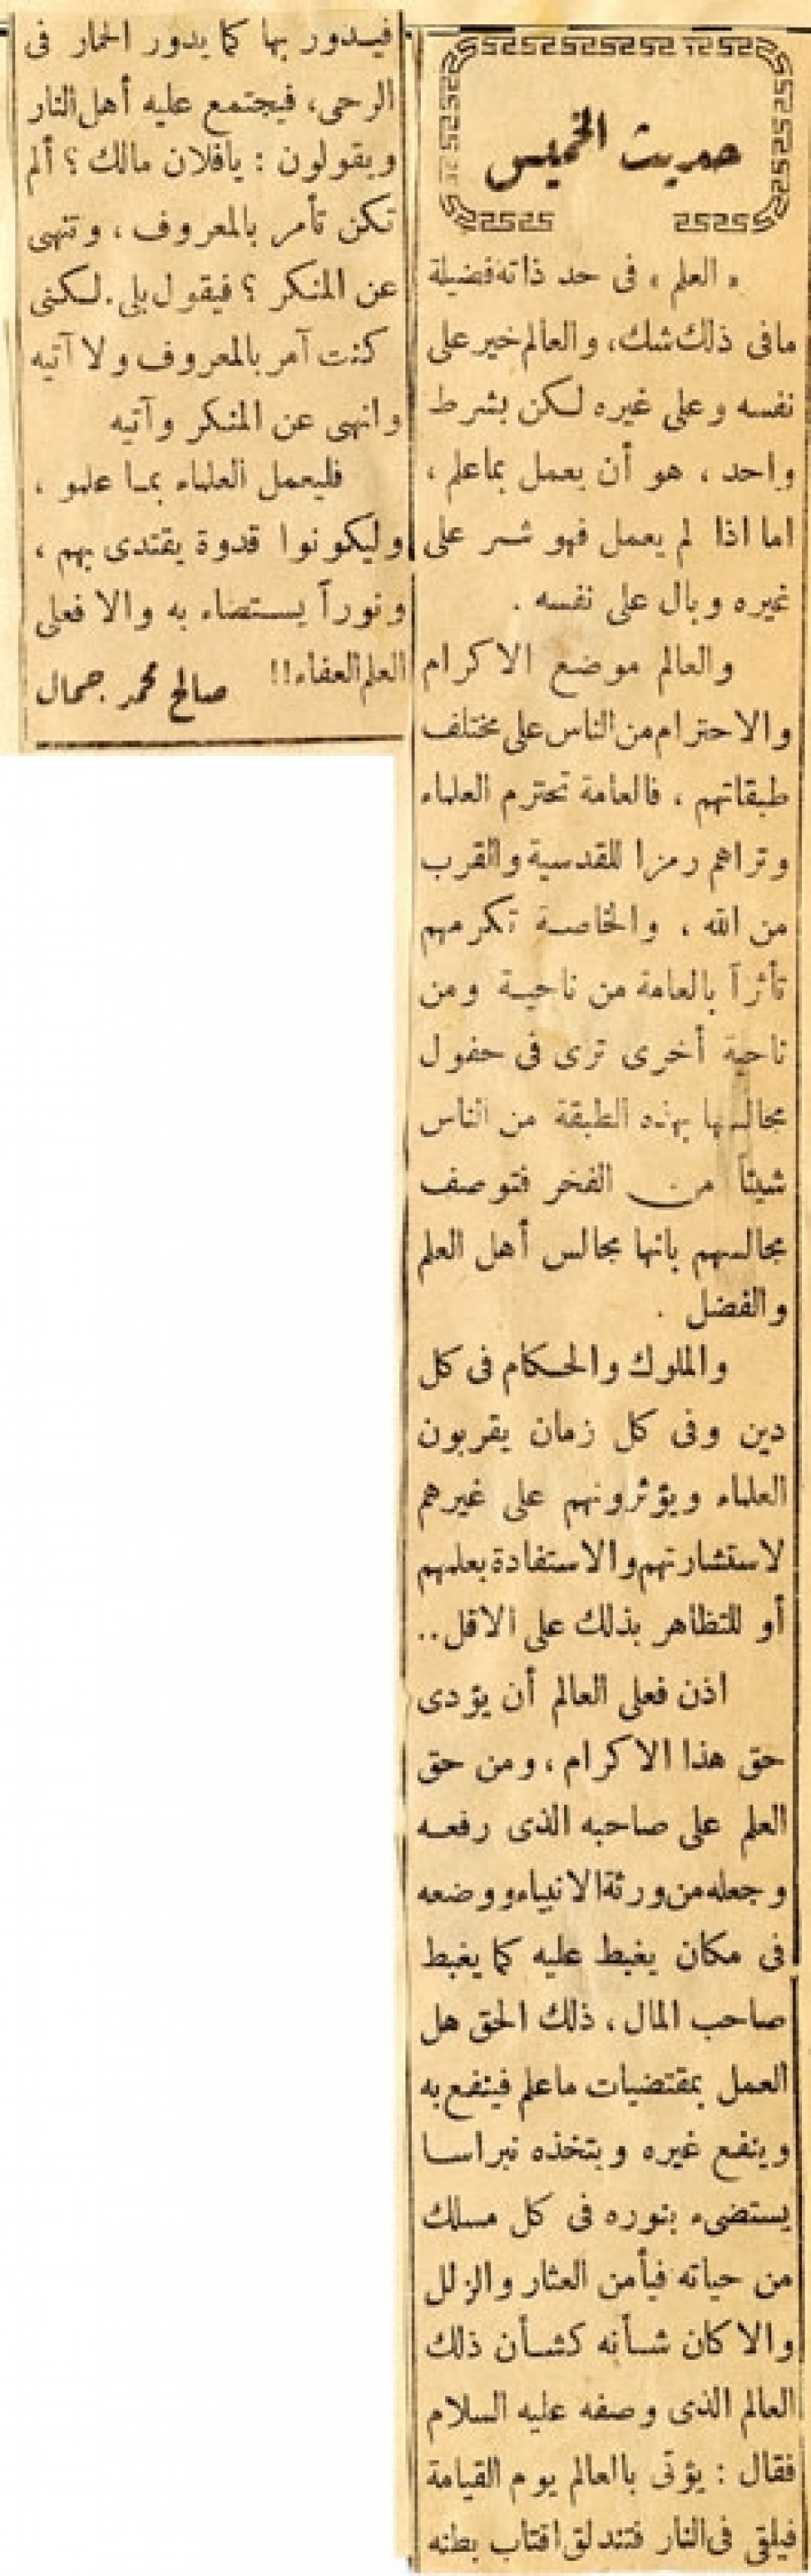 حديث الخميس
« العلم » فى حد ذاته فضيلة
مافى ذلك شك، والعالم خير على
نفسه وعلى غيره لكن بشرط
واحد ، هو أن يعمل بماعلم ،
اما اذا لم يعمل فهو شر على
غيره وبال على نفسه .
والعالم موضع الاكرام
والاحترام من الناس على مختلف
طبقاتهم ، فالعامة تحترم العلماء
وتراهم رمزا للقدسية والقرب
من الله ، والخاصة تكرمهم
تأثرآ بالعامة من ناحية ومن
ناحية أخرى ترى فى حفول
مجالسها بهذه الطبقة من الناس
شيئاً من الفخر فتوصف
مجالسهم بانها مجالس أهل العلم
والفضل .
والملوك والحكام فى كل
دين وفى كل زمان يقربون
العلماء ويؤثرونهم على غيرهم
لاستشارتهم والاستفادة بعلمهم
أو للتظاهر بذلك على الاقل ..
اذن فعلى العالم أن يؤدى
حق هذا الاكرام ، ومن حق
العلم على صاحبه الذى رفعه
وجعله من ورثة الانبياء ووضعه
فى مكان يغبط عليه كما يغبط
صاحب المال ، ذلك الحق هل
العمل بمقتضيات ماعلم فينفع به
وينفع غيره ويتخذه نبراسا
يستضىء بنوره فى كل مسلك
من حياته فيأمن العثار والزلل
والا كان شأنه كشأن ذلك
العالم الذى وصفه عليه السلام
فقال : يؤتى بالعالم يوم القيامة
فيلقى فى النار فتندلق اقتاب بطنه
فيدور بها كما يدور الحمار فى
الرحى، فيجتمع عليه أهل النار
ويقولون : يافلان مالك ؟ ألم
تكن تأمر بالمعروف ، وتنهى
عن المنكر ؟ فيقول بلى . لكنى
كنت آمر بالمعروف ولا آتيه
وانهى عن المنكر وآتيه
فليعمل العلماء بما علمو ،
وليكونوا قدوة يقتدى بهم ،
ونورآ يستضاء به والا فعلى
العلم العفاء !! صالح محمد جمال